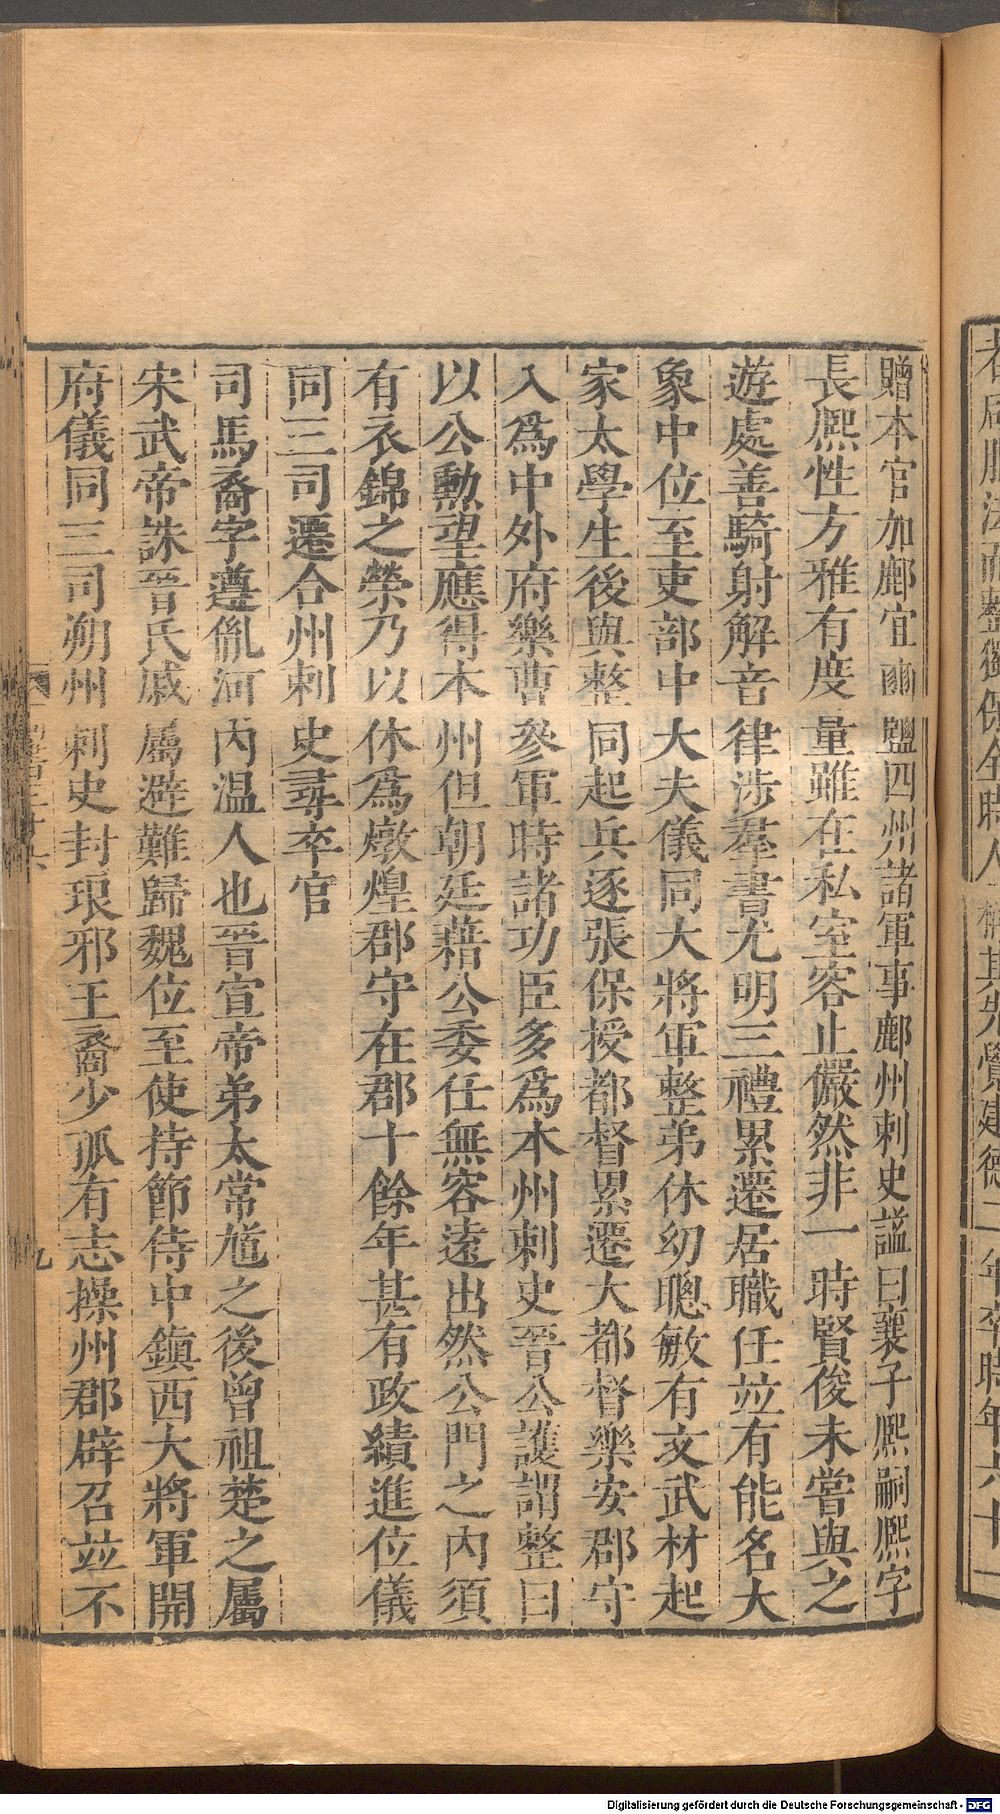 贈本官加鄜宜豳鹽四州諸軍事鄜州刺史謚曰襄子熈嗣熈字
長熈性方雅有度量雖在私室容止儼然非一時賢俊未嘗與之
遊處善騎射解音律涉羣書尤明三禮累遷居職任竝有能名大
象中位至吏部中大夫儀同大將軍整弟休幼聰敏有文武材起
家太學生後與整同起兵逐張保授都督累遷大都督樂安郡守
入爲中外府樂曹參軍時諸功臣多爲本州刺史晉公護謂整曰
以公勲望應得本州但朝廷藉公委任無容遠出然公門之內須
有衣錦之榮乃以休爲燉煌郡守在郡十餘年甚有政績進位儀
同三司遷合州刺史尋卒官
司馬裔字遵胤河內温人也晉宣帝弟太常馗之後曾祖楚之屬
宋武帝誅晉氏戚屬避難歸魏位至使持節侍中鎮西大將軍開
府儀同三司朔州刺史封琅邪王裔少孤有志操州郡辟召竝不
九
Digitalisierung gefördert durch die Deutsche Forschungsgemeinschaft - DFG